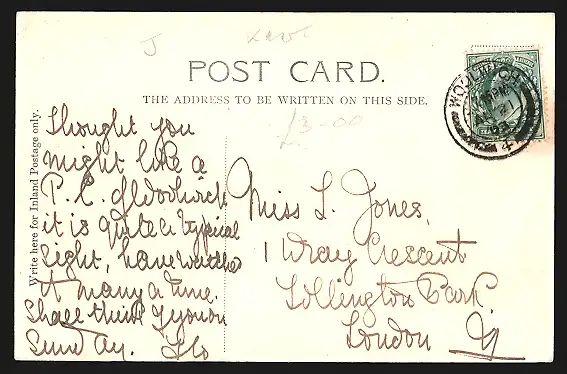 J
POST CARD.
THE ADDRESS TO BE WRITTEN ON THIS SIDE.
£3-00
Write here for Inland Postage only.
Thought you
might like a
P.C. of Woolwich
it is quite a typical
sight, have watched
it many a time.
Shall think of you on
Sunday. Flo
Miss L. Jones,
1 Wray Crescent
Tollington Park.
London N
WOOLWICH
21